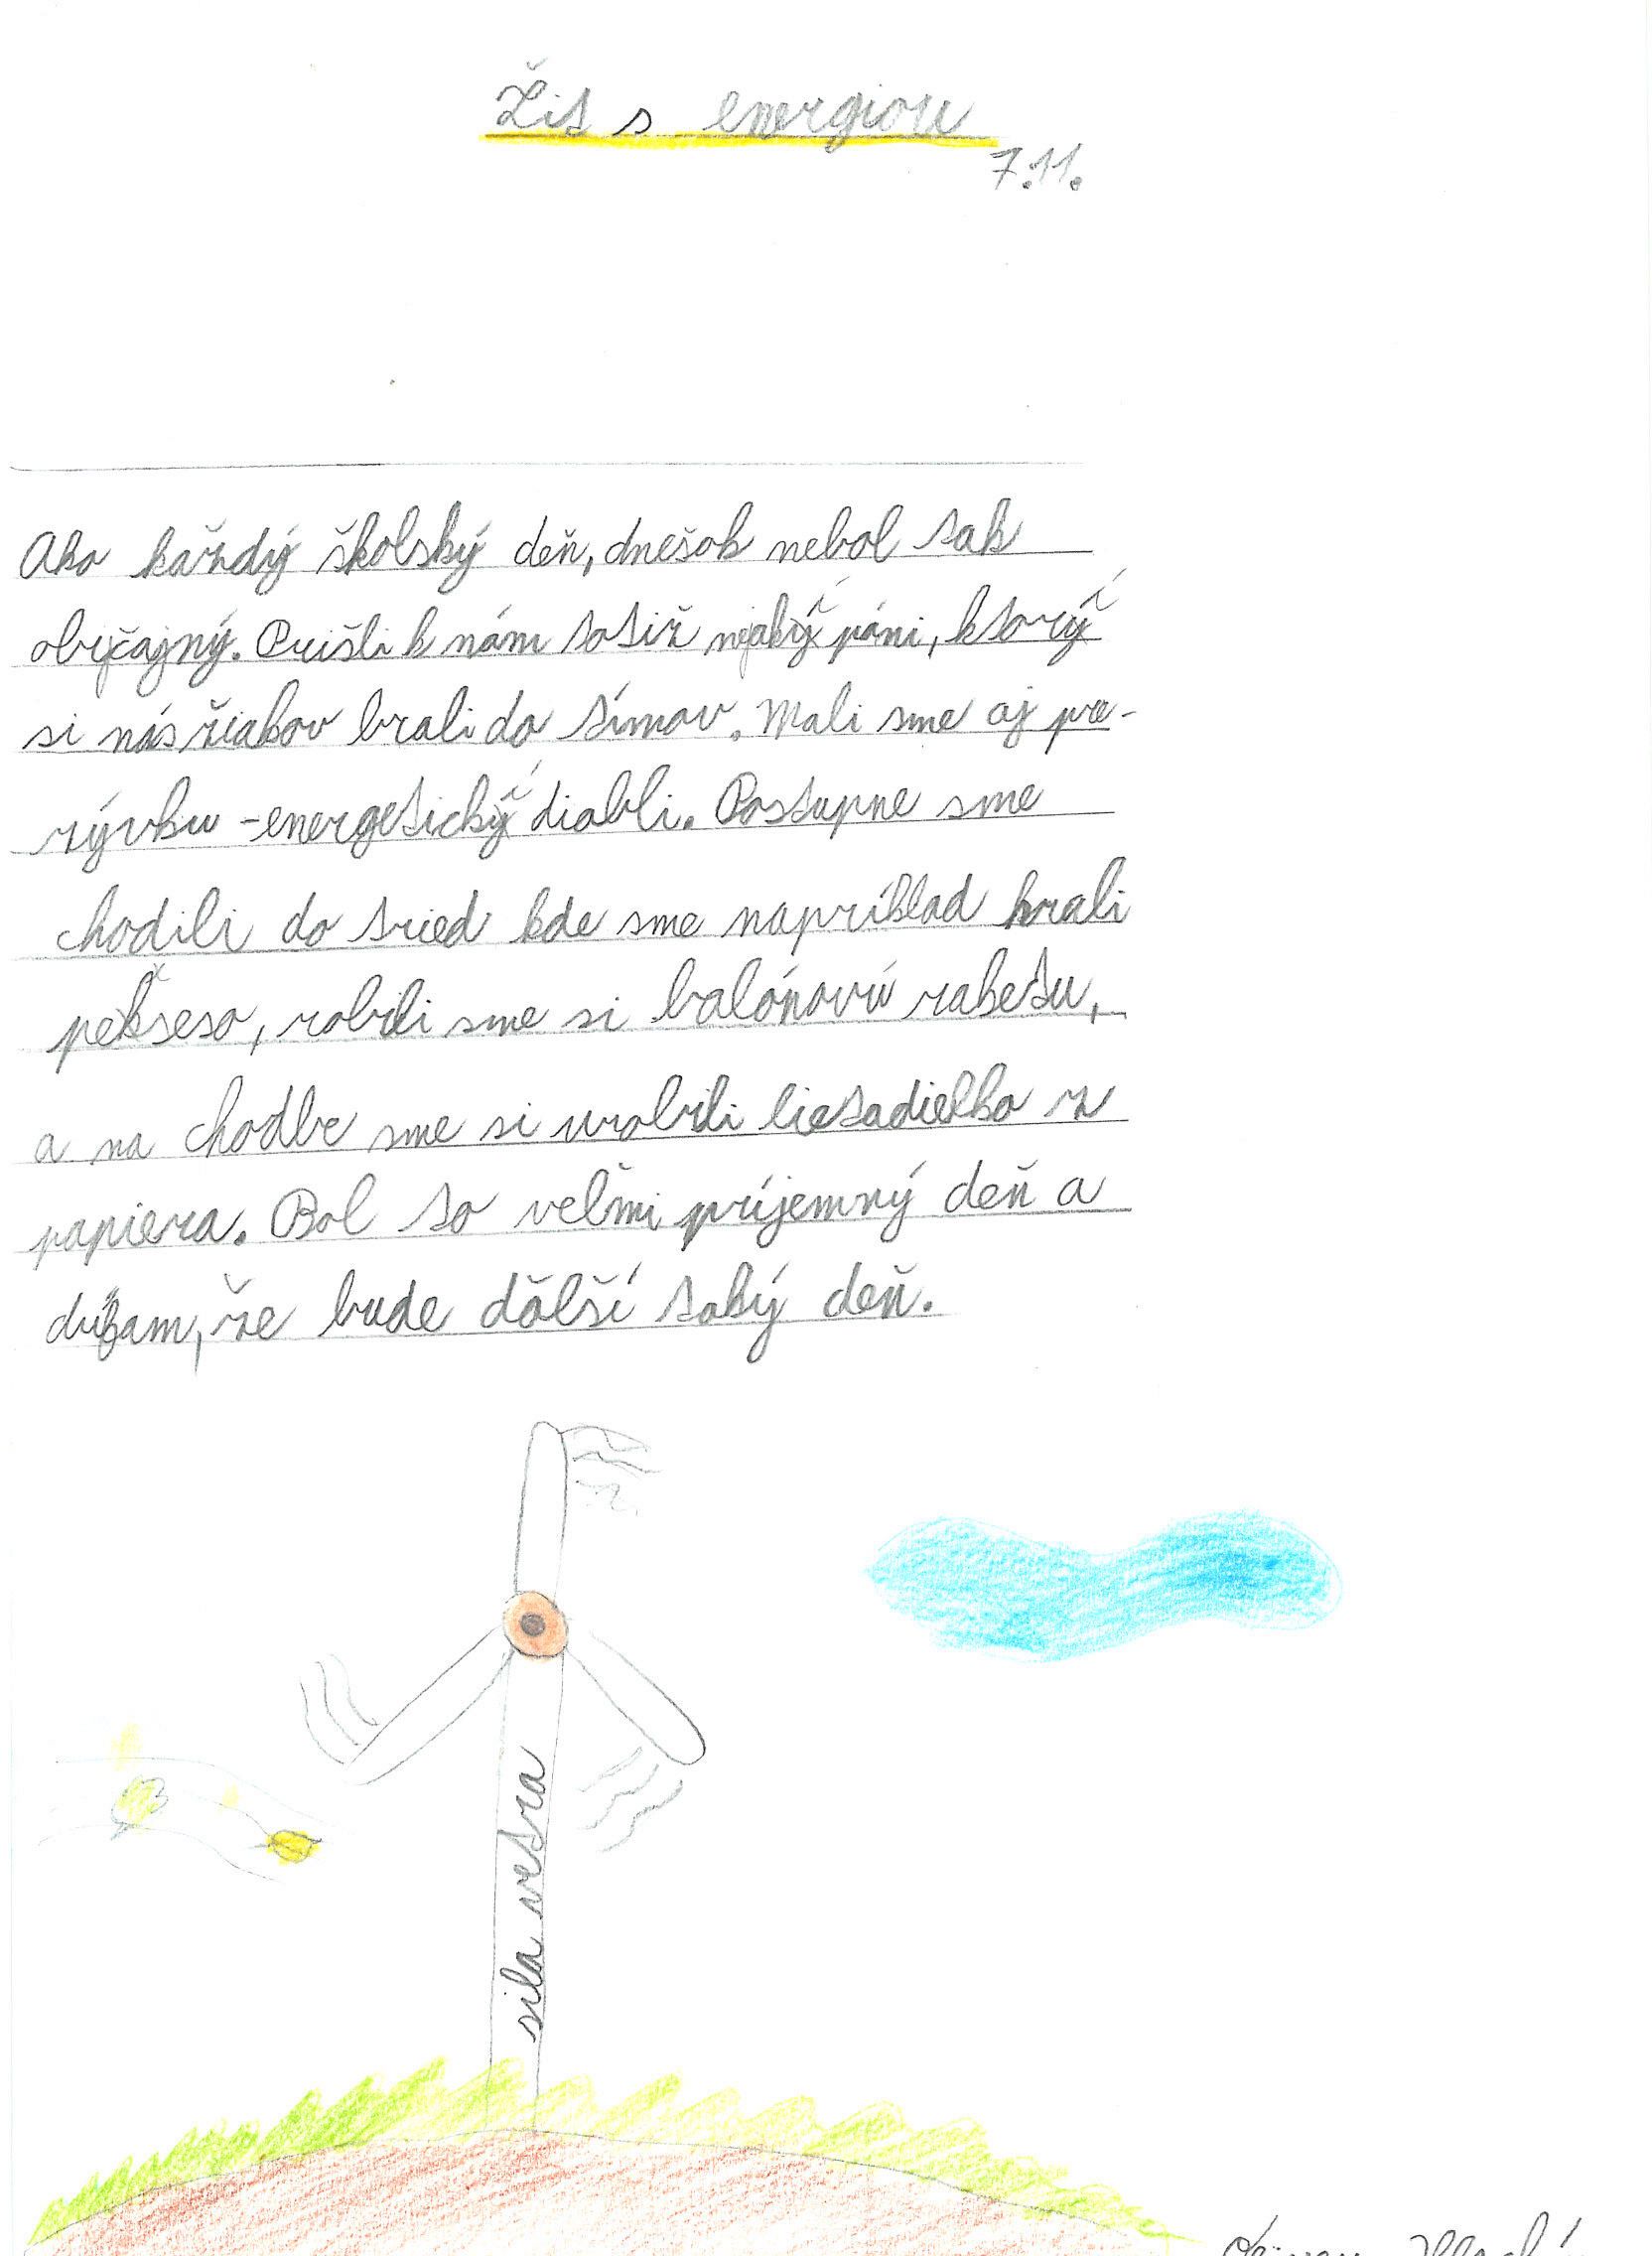 Žiť s energiou
7.11.
Ako každý školský deň, dnešok nebol tak
obyčajný. Prišli k nám totiž nejakí páni, ktorí
si nás žiakov brali do tímov. Mali sme aj pre-
zývku - energetickí diabli. Postupne sme
chodili do tried kde sme napríklad hrali
pekseso, robili sme si balónovú raketu,
a na chodbe sme si urobili lietadielko z
papiera. Bol to veľmi príjemný deň a
dúfam, že bude ďalší taký deň.
sila vetra